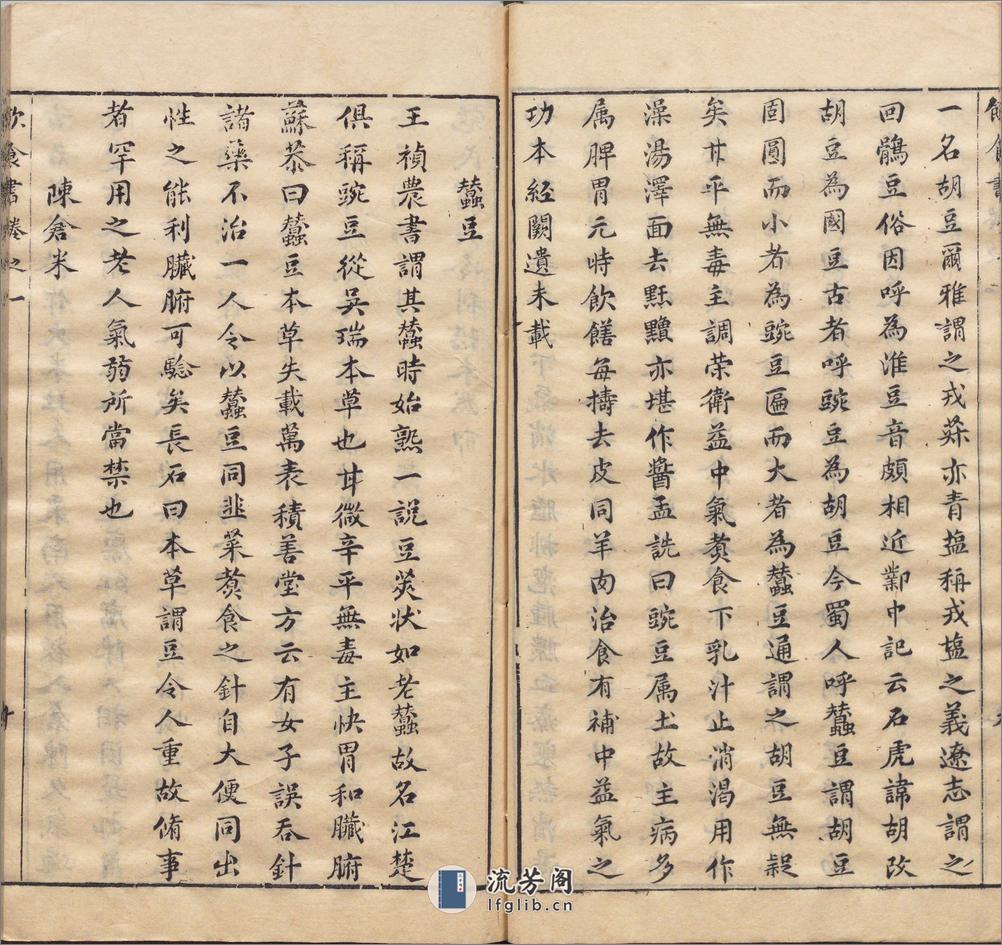 一名胡豆爾雅謂之戎菽亦青塩稱戎塩之義遼志謂之
回鶻豆俗因呼為淮豆音頗相近鄴中記云石虎諱胡改
胡豆為國豆古者呼豌豆為胡豆今蜀人呼蠶豆謂胡豆
囙圓而小者為豌豆匾而大者為蠶豆通謂之胡豆無誤
矣甘平無毒主調荣衛益中氣煑食下乳汁止消渴用作
澡湯澤面去䵟䵳亦堪作醬孟詵曰豌豆属土故主病多
属脾胃元時飲饍每擣去皮同羊肉治食有補中益氣之
功本經闕遺未載
蠶豆
王禎農書謂其蠶時始熟一說豆莢状如老蠶故名江楚
俱稱豌豆從吳瑞本草也甘微辛平無毒主快胃和臟腑
蘇恭曰蠶豆本草失載萬表積善堂方云有女子誤吞針
諸藥不治一人令以蠶豆同韭菜煑食之針自大便同出
性之能利臟腑可騐矣長石曰本草謂豆令人重故脩事
者罕用之老人氣弱所當禁也
陳倉米
飲食書卷之一
流芳阁
lfglib.cn